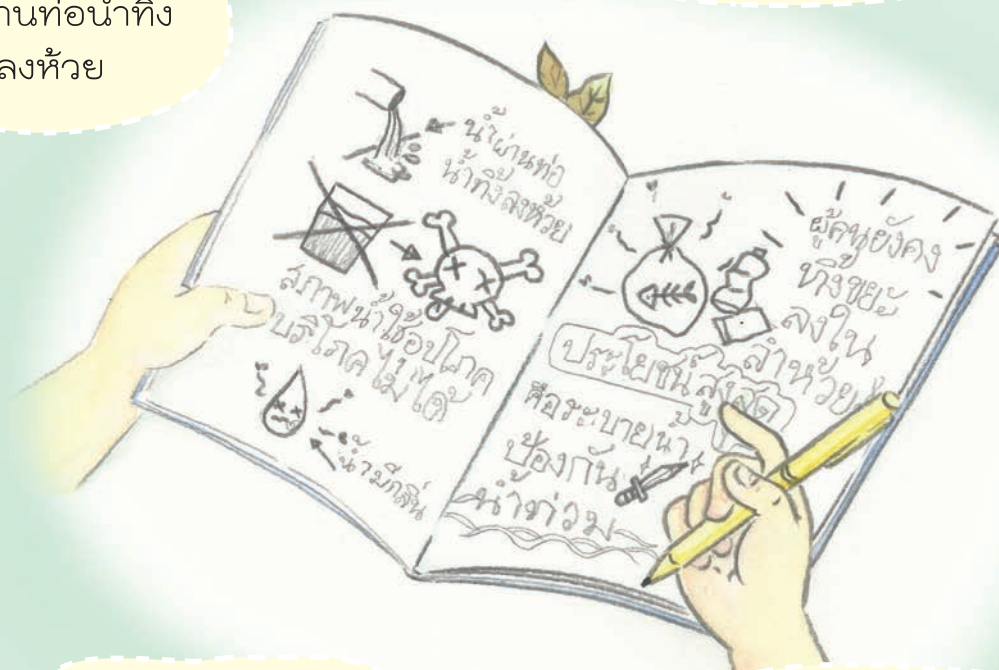 านท่อน้ำทิ้ง
ลงห้วย
น้ำผ่านท่อ
น้ำทิ้งลงห้วย
สภาพน้ำใช้อุปโภค
บริโภคไม่ได้
น้ำมีกลิ่น
ผู้คนยังคง
ทิ้งขยะ
ลงใน
ลำห้วย
ประโยชน์สูงสุด
คือระบายน้ำ
ป้องกัน
น้ำท่วม